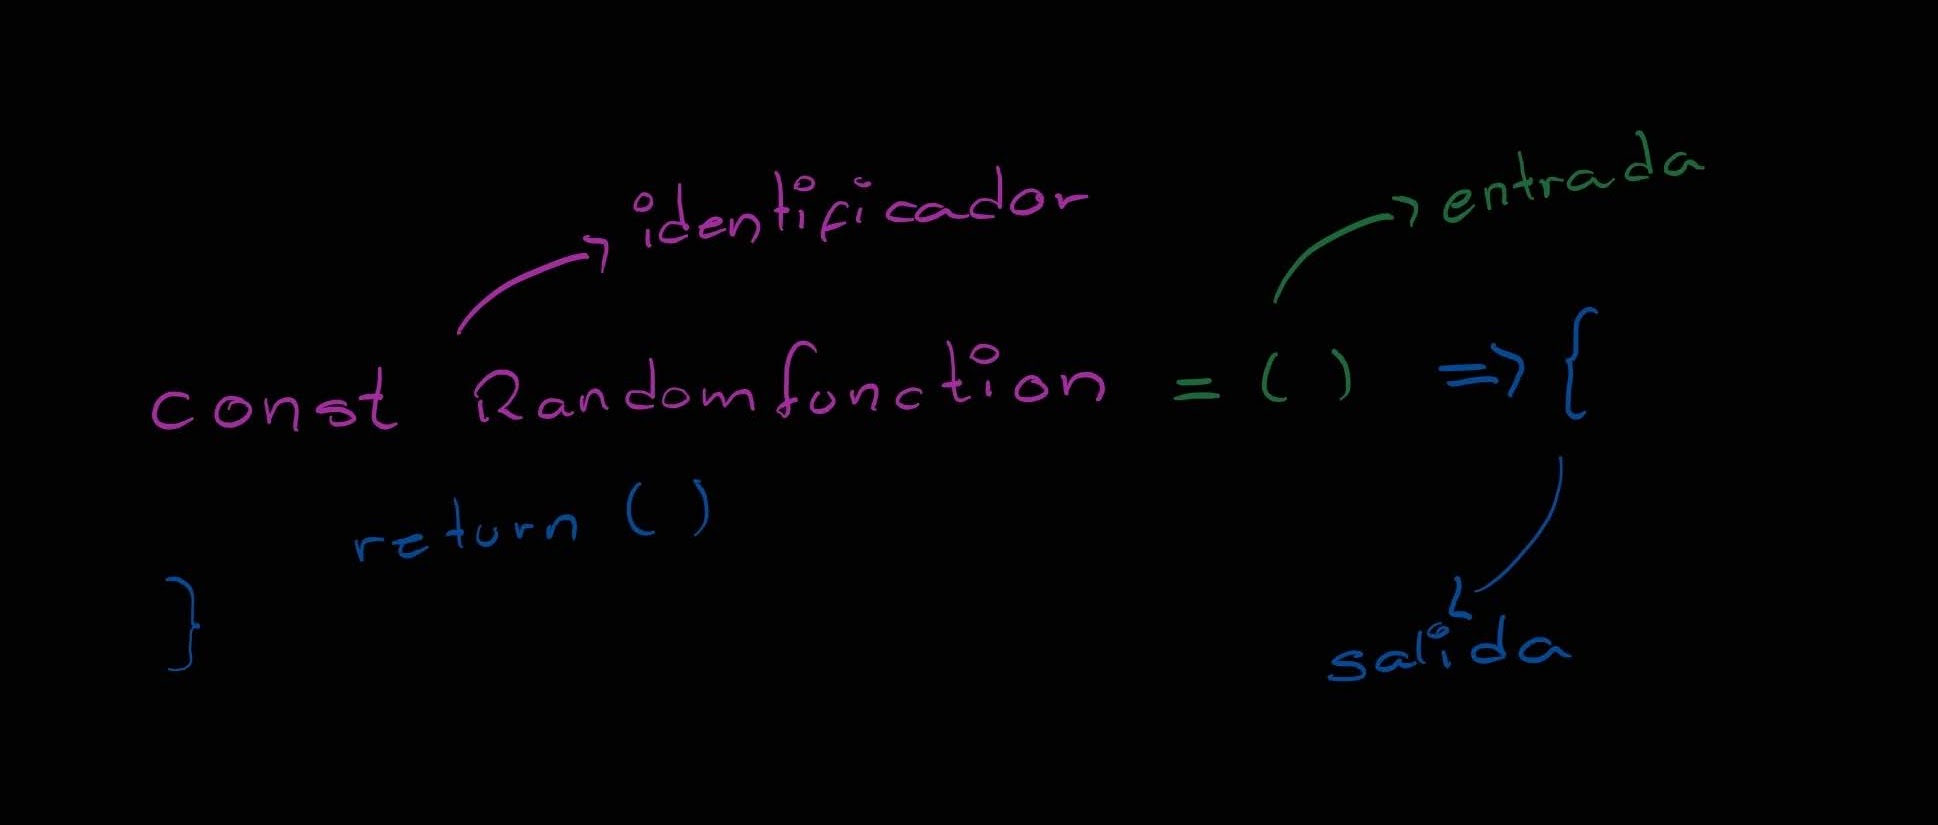 identificador
entrada
const Randomfunction = ( ) => {
return ( )
}
salida